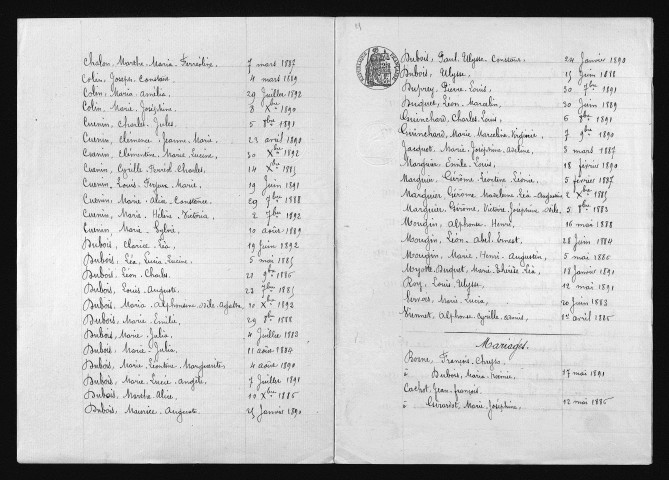 Chalon, Marthe Maria Ferréoline 7 mars 1887
Colin, Joseph Constant 4 mars 1889
Colin, Maria Amélia 29 Juillet 1892
Colin, Marie Joséphine 8 Xbre 1890
Cuenin, Charles Jules 5 8bre 1891
Cuenin, Clémence Jeanne Marie 23 avril 1890
Cuenin, Clémentine Marie Lucine 30 Xbre 1892
Cuenin, Cyrille Charles 14 Xbre 1885
Cuenin, Louis Marie 19 Juin 1891
Cuenin, Marie Alix Constance 29 7bre 1888
Cuenin, Marie Hélène Victoria 2 7bre 1892
Cuenin, Marie Sylvie 10 août 1889
Dubois, Clarice Léa 19 Juin 1892
Dubois, Léa Lucia Lucine 5 mai 1885
Dubois, Léon Charles 21 9bre 1886
Dubois, Louis Auguste 23 7bre 1885
Dubois, Maria Alphonsine 20 Xbre 1892
Dubois, Marie Emilie 29 8bre 1888
Dubois, Marie Julia 4 Juillet 1883
Dubois, Marie Julia 11 août 1884
Dubois, Marie Léontine Marguerite 4 août 1890
Dubois, Marie Lucie Angèle 7 Juillet 1891
Dubois, Marthe Alice 10 Xbre 1886
Dubois, Maurice Auguste 25 Janvier 1890
Dubois, Paul Ulysse Constant 24 Janvier 1890
Dubois, Ulysse 15 Juin 1888
Duprey, Pierre Louis 30 7bre 1891
Duquet, Léon Marcelin 30 Juin 1889
Guinchard, Charles Louis 6 8bre 1891
Guinchard, Marie Marceline Virginie 7 9bre 1890
Jacquet, Marie Joséphine 3 mars 1887
Marguier, Emile Louis 18 février 1890
Marguier, Gérôme Léontine Léonie 5 février 1887
Marguier, Gérôme Madeleine Léa Augustine 2 Xbre 1885
Marguier, Gérôme, Victoire Joséphine 5 8bre 1883
Mougin, Alphonse Henri 16 mai 1888
Mougin, Léon Abel Ernest 28 Juin 1884
Mougin, Marie Henri Augustin 5 mai 1886
Duquet, Marie Thérèse Léa 18 Janvier 1891
Roy, Louis Ulysse 12 mai 1891
Marie Lucia 20 Juin 1883
Alphonse Cyrille 1er avril 1886
Mariages.
François
à Dubois, Maria 17 mai 1891
Cachot, Jean François
à Girardet, Marie Joséphine 12 mai 1886